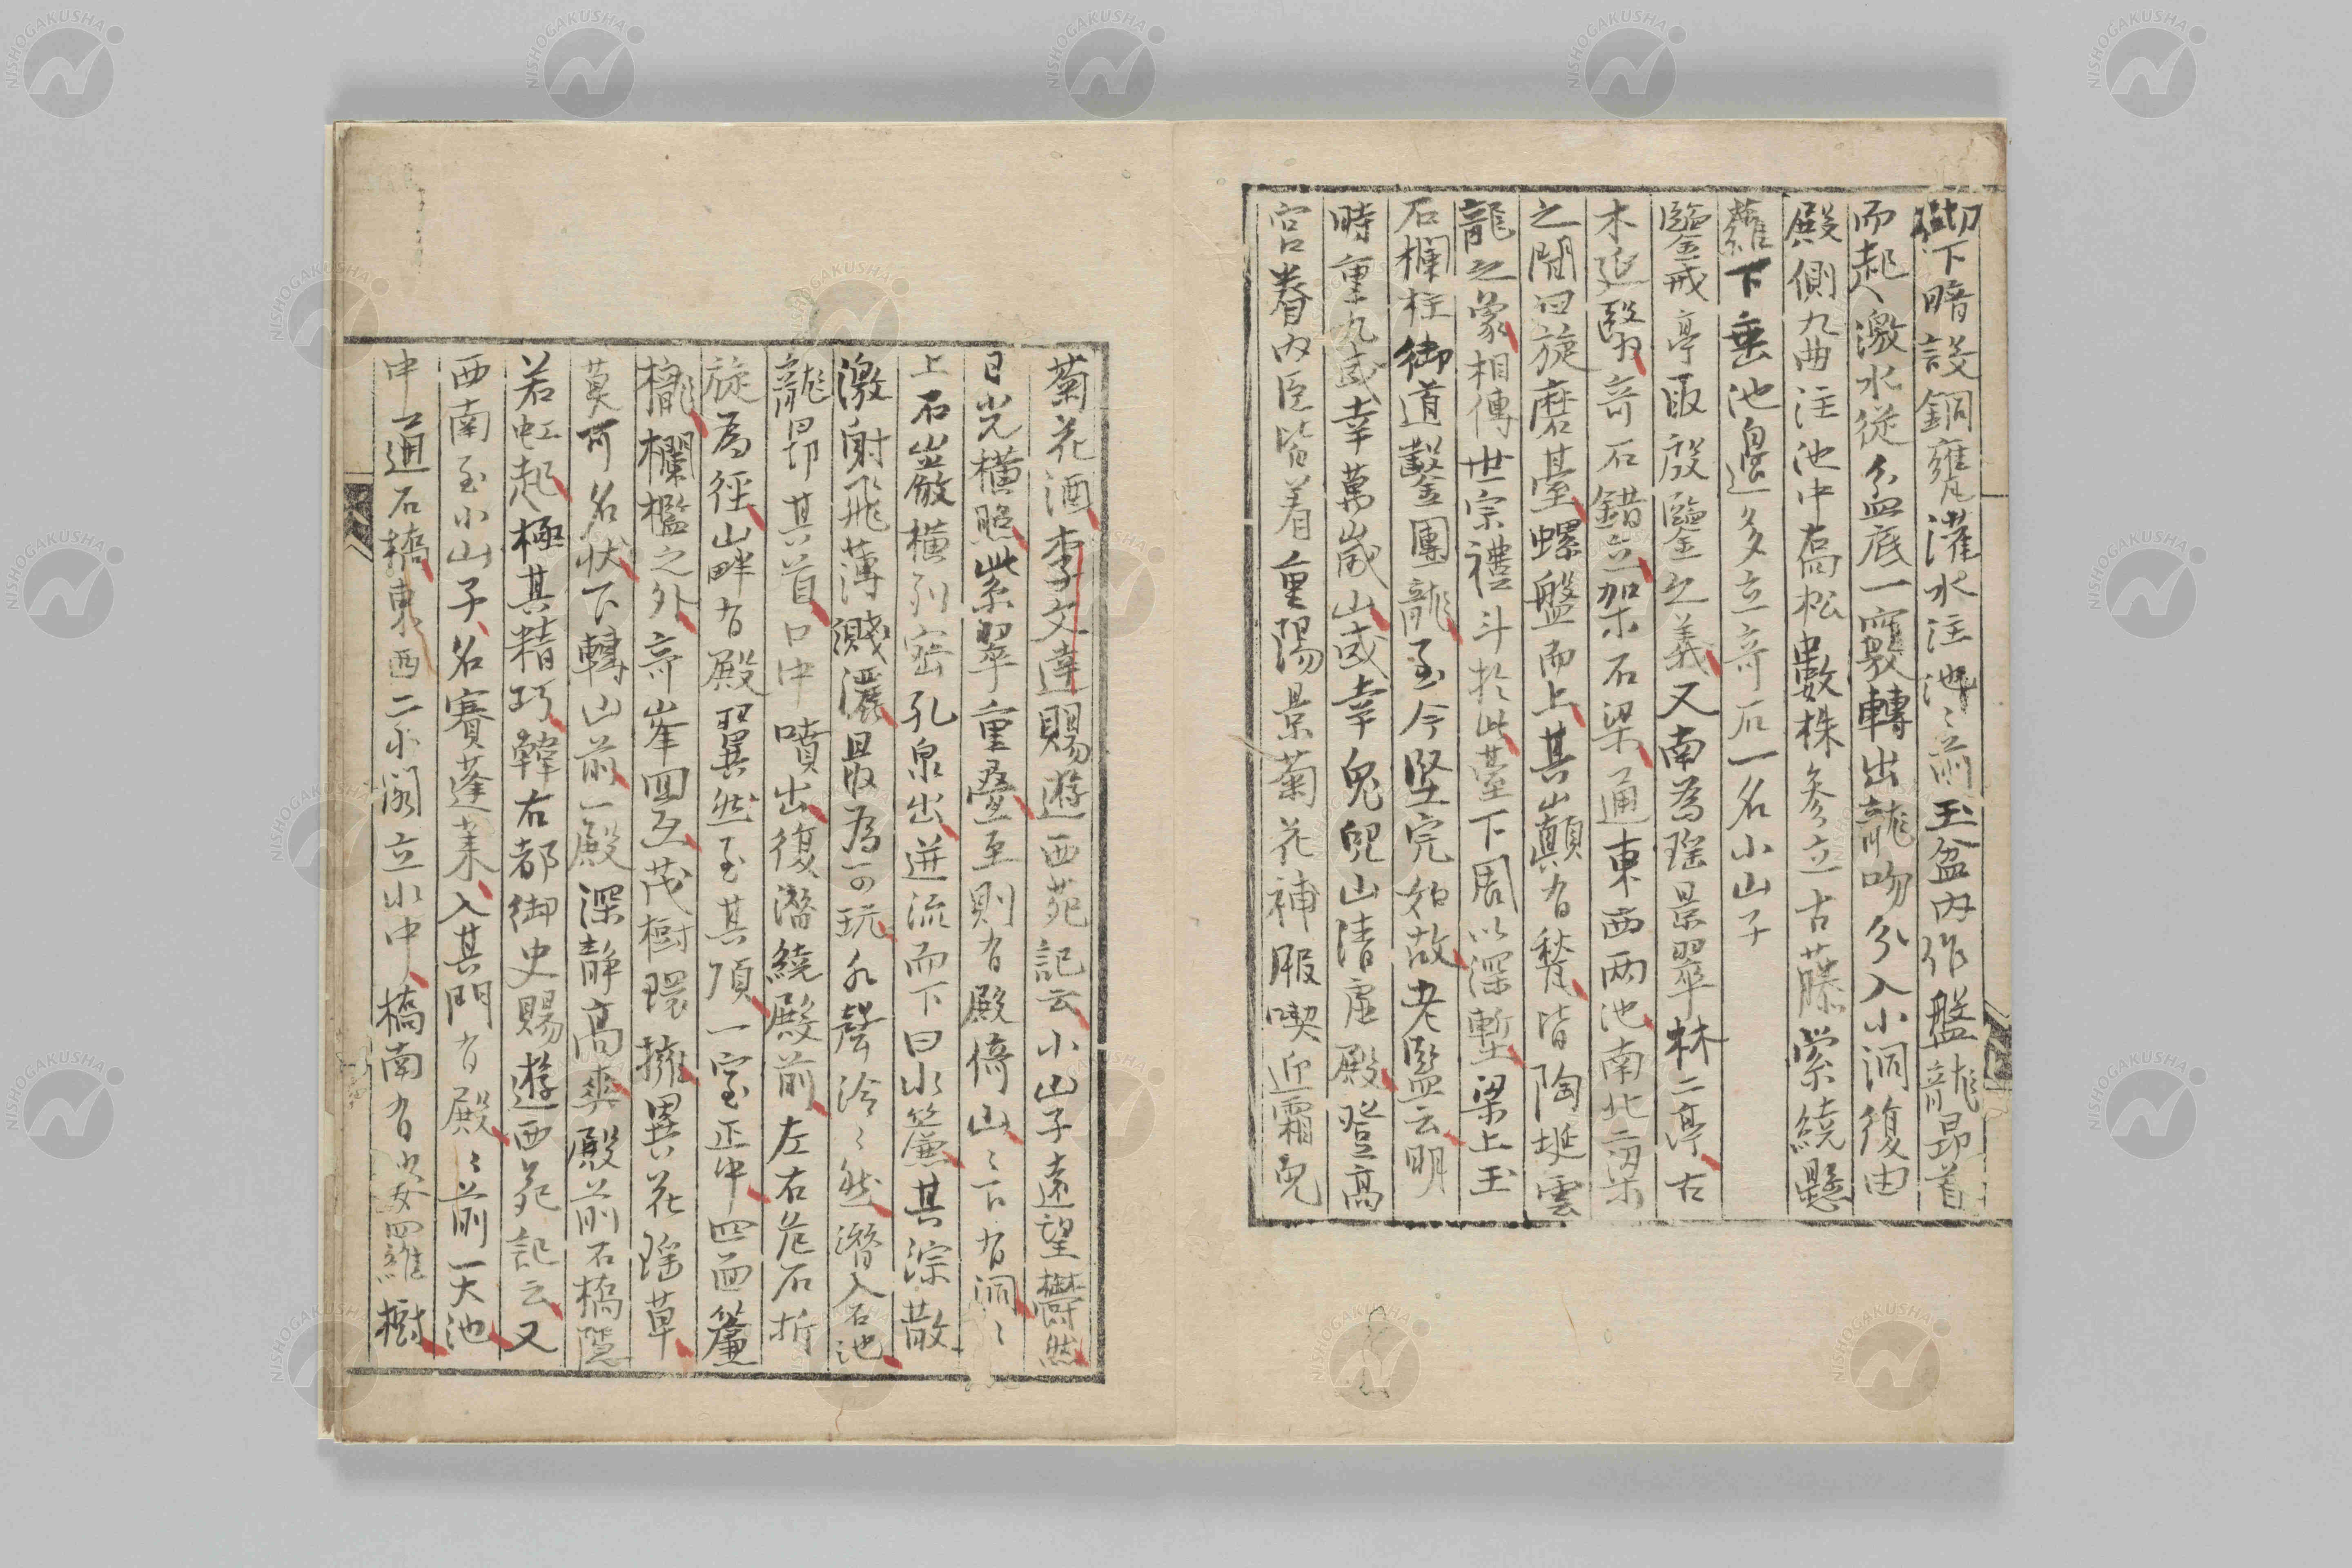 砌下暗設銅甕灌水注池〻前玉盆內作盤龍昂首
而起激水從盆底一竅轉出龍吻分入小洞復由
殿側九曲注池中喬松數株參立古藤縈繞懸
蘿下垂池邊多立竒石一名小山子
鑒戒亭取殷鑒之義又南爲瑤景翠林二亭古
木延翳竒石錯立架石梁通東西兩池南北二梁
之間曰旋磨臺螺盤而上其巔有甃皆陶埏雲
龍之象相傳世宗禮斗於此臺下周以深塹梁上玉
石欄柱御道鑿團龍至今堅完如故老監云明
時重九或幸萬歲山或幸兔兒山淸虛殿登高
宮眷內臣皆着重陽景菊花補服喫迎霜兔
菊花酒李文達賜遊西苑記云小山子遠望鬱然
日光橫照紫翠重疊至則有殿倚山〻下有洞〻
上石巖橫列密孔泉出迸流而下曰水簾其淙散
激射飛薄濺灑最爲可玩水聲泠〻然潛入石池
龍昂其首口中噴出復潛繞殿前左右危石折
旋爲徑山畔有殿翼然至其頂一室正中四面簾
櫳欄檻之外竒峯四互茂樹環擁異花瑤草
莫可名狀下轉山前一殿深靜高爽殿前石橋隱
若虹起極其精巧韓右都御史賜遊西苑記云又
西南至小山子名賽蓬萊入其門有殿〻前一大池
中通石橋東西二小閣立水中橋南有娑羅樹